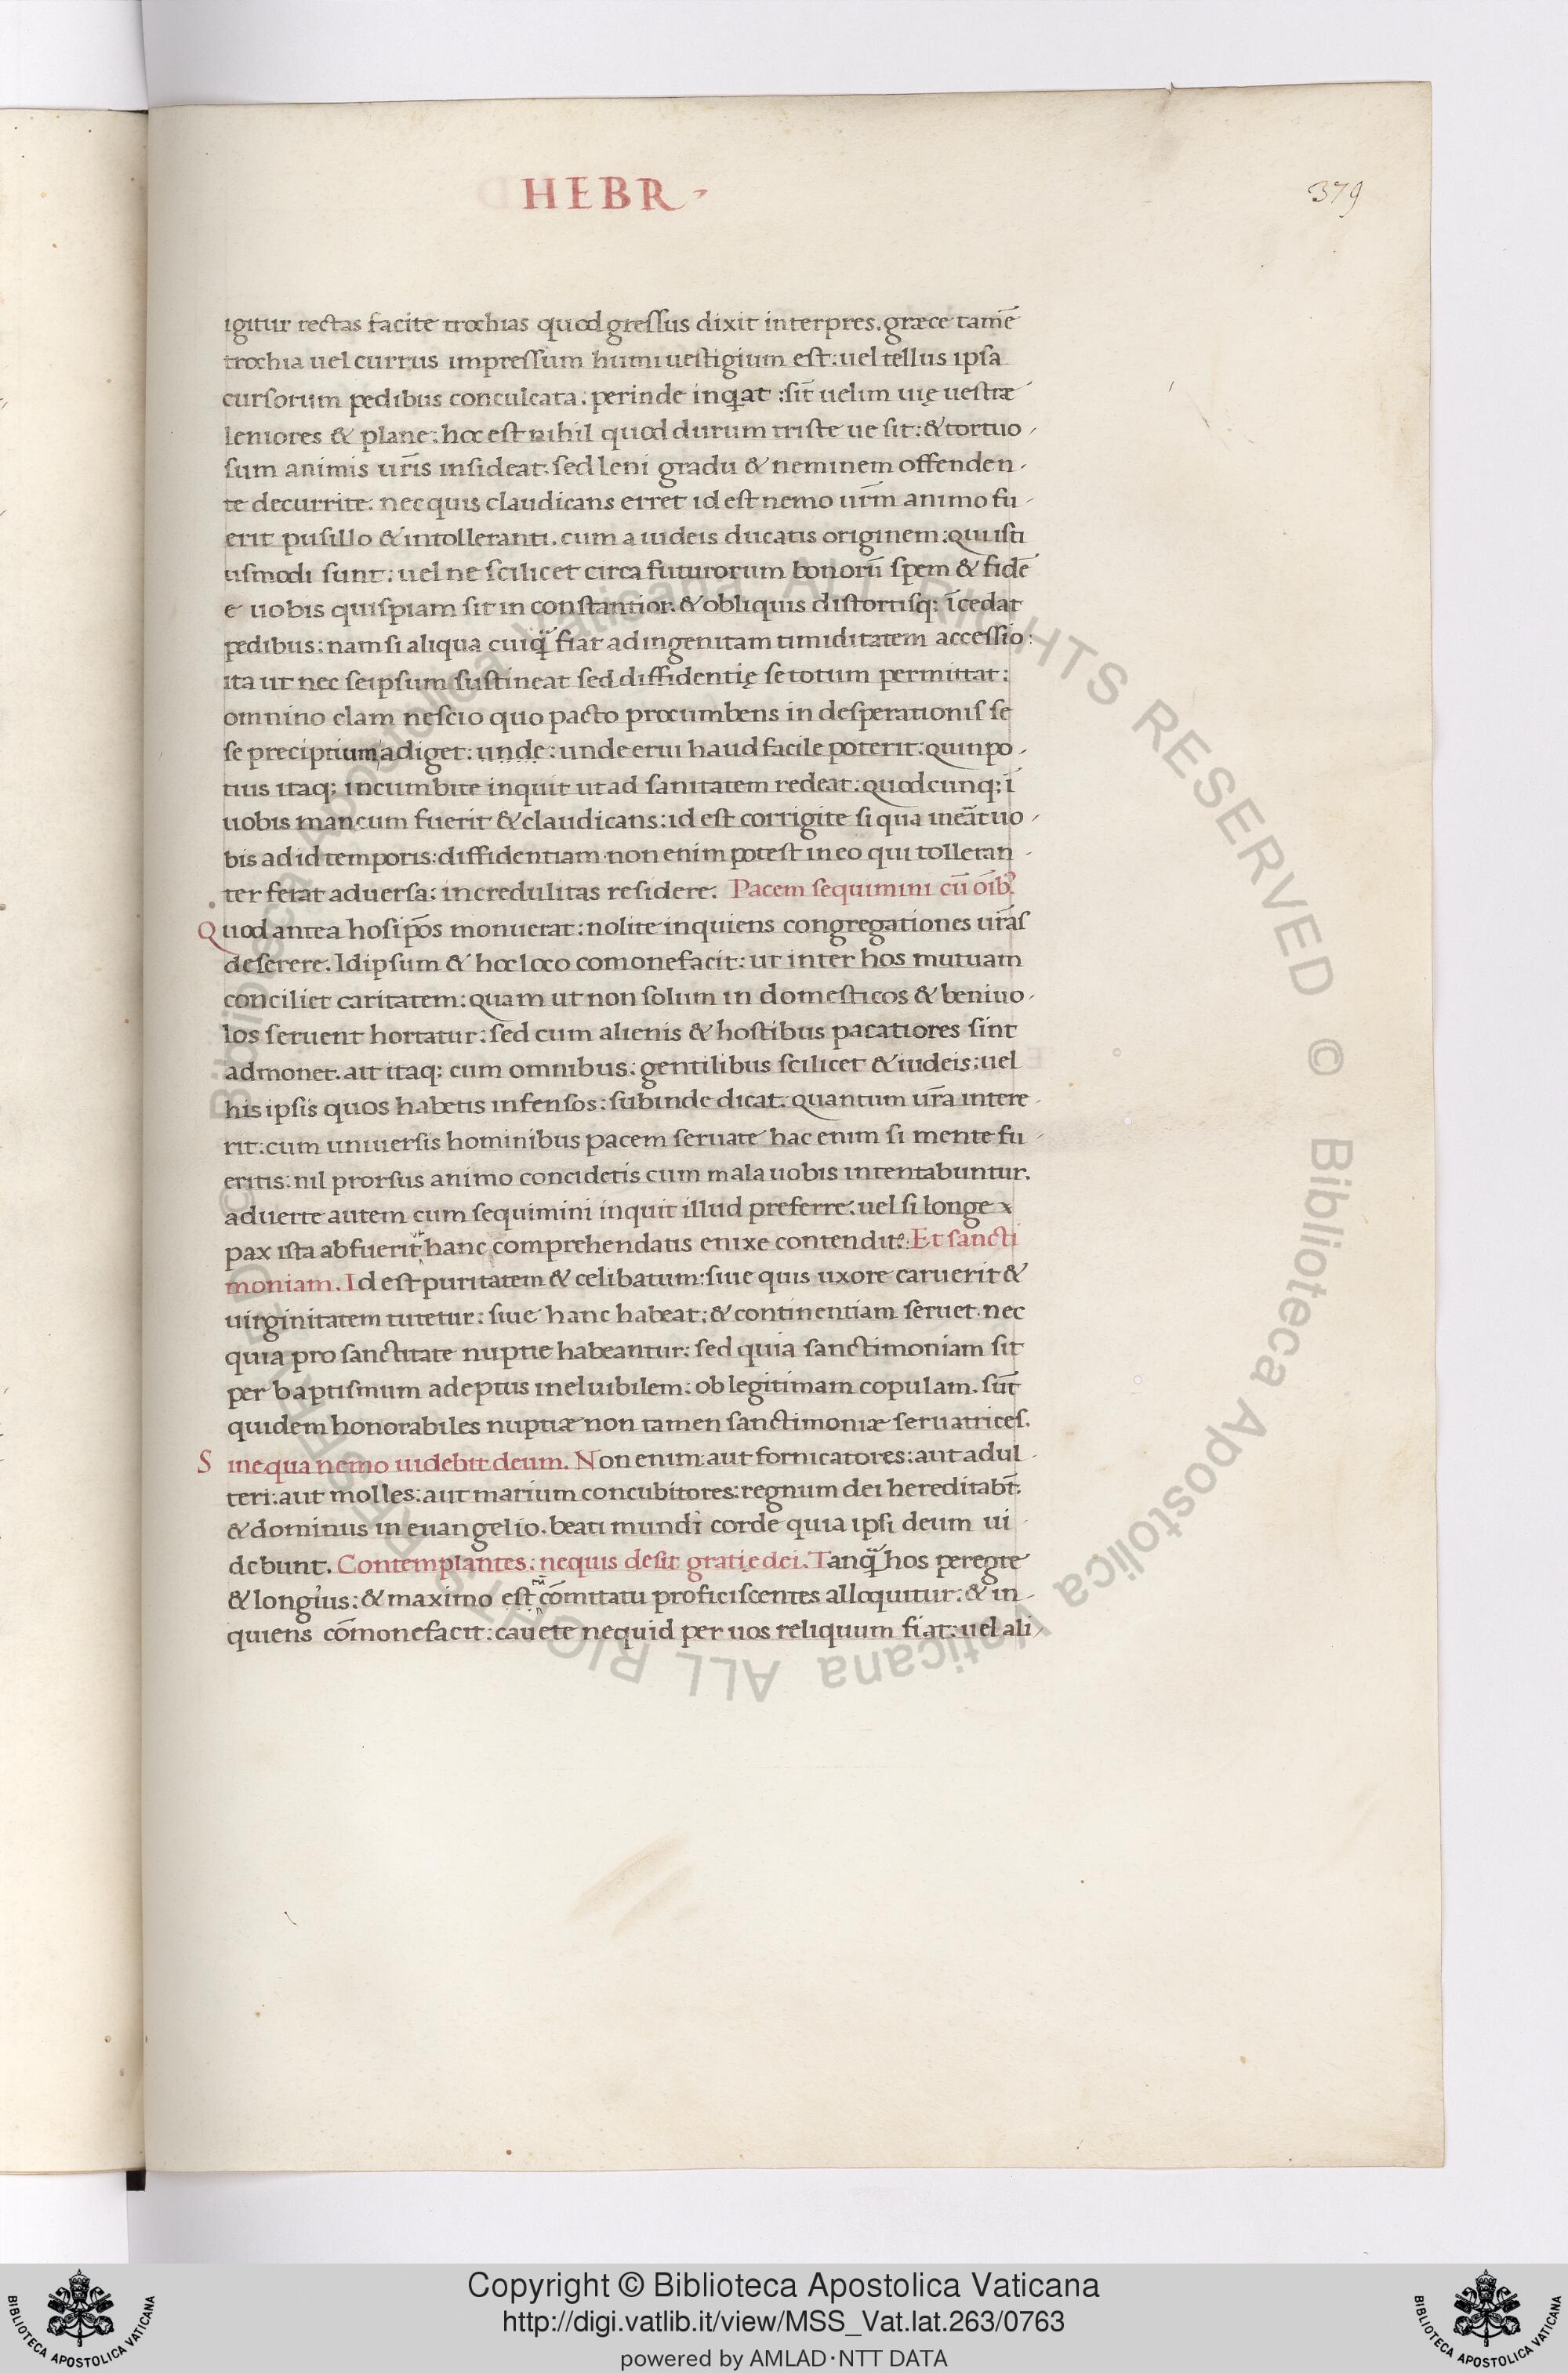 HEBR
379
igitur rectas facite trochias quod gressus dixit interpres. græce tamē
trochia uel currus impressum humi uestigium est: uel tellus ipsa
cursorum pedibus conculcata: perinde inquat: sit̄ uelim uię uestræ
leniores & plane: hoc est nihil quod durum triste ue sit: & tortuo-
sum animis ur̄is insideat. sed leni gradu & neminem offenden-
te decurrite: nec quis claudicans erret id est nemo ur̄m animo fu-
erit pusillo & intolleranti. cum a iudeis ducatis originem: qui isti
usmodi sunt: uel ne scilicet circa futurorum bonorū spem & fidē
e uobis quispiam sit in constantior. & obliquis distortisq; īcedat
pedibus: nam si aliqua cuiq̄ fiat ad ingenitam timiditatem accessio:
ita ut nec seipsum sustineat sed diffidentię se totum permittat:
omnino clam nescio quo pacto procumbens in desperationis se
se preciptium adiget: unde: unde erui haud facile poterit: quin po-
tius itaq; incumbite inquit ut ad sanitatem redeat: quodcunq; ī
uobis mancum fuerit & claudicans: id est corrigite si qua ineāt uo-
bis ad id temporis: diffidentiam. non enim potest in eo qui tolleran-
ter ferat aduersa: incredulitas residere. Pacem sequimini cū oīb;
Quod antea hos ip̄os monuerat: nolite inquiens congregationes ur̄as
deserere. Idipsum & hoc loco comonefacit: ut inter hos mutuam
conciliet caritatem: quam ut non solum in domesticos & beniuo-
los seruent hortatur: sed cum alienis & hostibus pacatiores sint
admonet. ait itaq: cum omnibus: gentilibus scilicet & iudeis: uel
his ipsis quos habetis infensos: subinde dicat. quantum ur̄a intere-
rit: cum uniuersis hominibus pacem seruate hac enim si mente fu-
eritis: nil prorsus animo concidetis cum mala uobis intentabuntur.
aduerte autem cum sequimini inquit illud preferre: uel si longe
pax ista abfuerit ut hanc comprehendatis enixe contendite: Et sancti
moniam. Id est puritatem & celibatum: siue quis uxore caruerit &
uirginitatem tutetur: siue hanc habeat: & continentiam seruet. nec
quia pro sanctitate nuptie habeantur: sed quia sanctimoniam sit
per baptismum adeptus ineluibilem: ob legitimam copulam. sūt
quidem honorabiles nuptiæ non tamen sanctimoniæ seruatrices.
Sine qua nemo uidebit deum. Non enim: aut fornicatores: aut adul-
teri: aut molles: aut marium concubitores: regnum dei hereditabt̄.
& dominus in euangelio. beati mundi corde quia ipsi deum ui-
debunt. Contemplantes: nequis desit gratię dei. Tanq̄ hos peregre
& longius: & maximo est cōmitatu proficiscentes alloquitur: & in-
quiens cōmonefacit: cauete nequid per uos reliquum fiat: uel ali-
© Biblioteca Apostolica Vaticana ALL RIGHTS RESERVED © Biblioteca Apostolica Vaticana ALL RIGHTS RESERVED
BIBLIOTECA APOSTOLICA VATICANA
Copyright © Biblioteca Apostolica Vaticana
http://digi.vatlib.it/view/MSS_Vat.lat.263/0763
powered by AMLAD·NTT DATA
BIBLIOTECA APOSTOLICA VATICANA